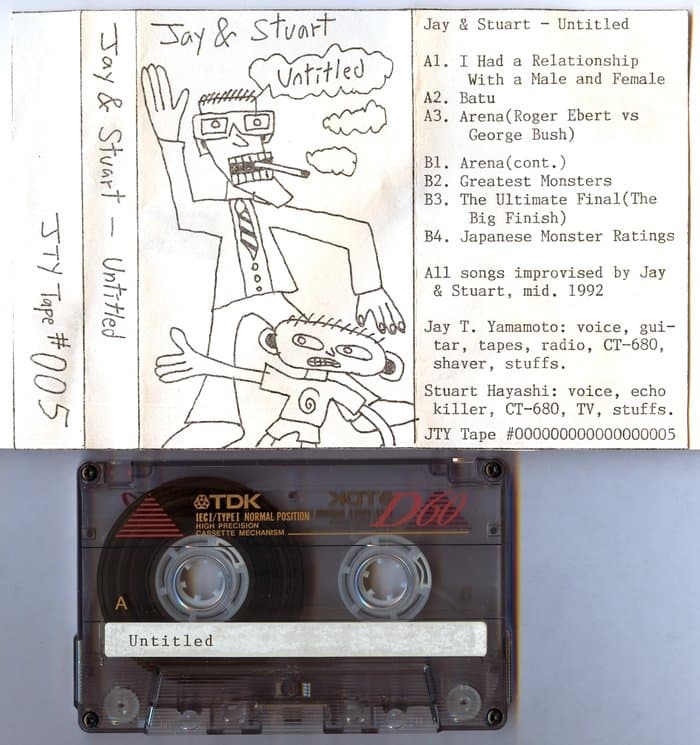 JTY Tape #005
Jay & Stuart - Untitled
Jay & Stuart
Untitled
Jay & Stuart - Untitled
A1. I Had a Relationship
With a Male and Female
A2. Batu
A3. Arena(Roger Ebert vs
George Bush)
B1. Arena(cont.)
B2. Greatest Monsters
B3. The Ultimate Final(The
Big Finish)
B4. Japanese Monster Ratings
All songs improvised by Jay
& Stuart, mid. 1992
Jay T. Yamamoto: voice, gui-
tar, tapes, radio, CT-680,
shaver, stuffs.
Stuart Hayashi: voice, echo
killer, CT-680, TV, stuffs.
JTY Tape #0000000000000000005
TDK
D60
IECI/TYPEI NORMAL POSITION
HIGH PRECISION
CASSETTE MECHANISM
A
Untitled